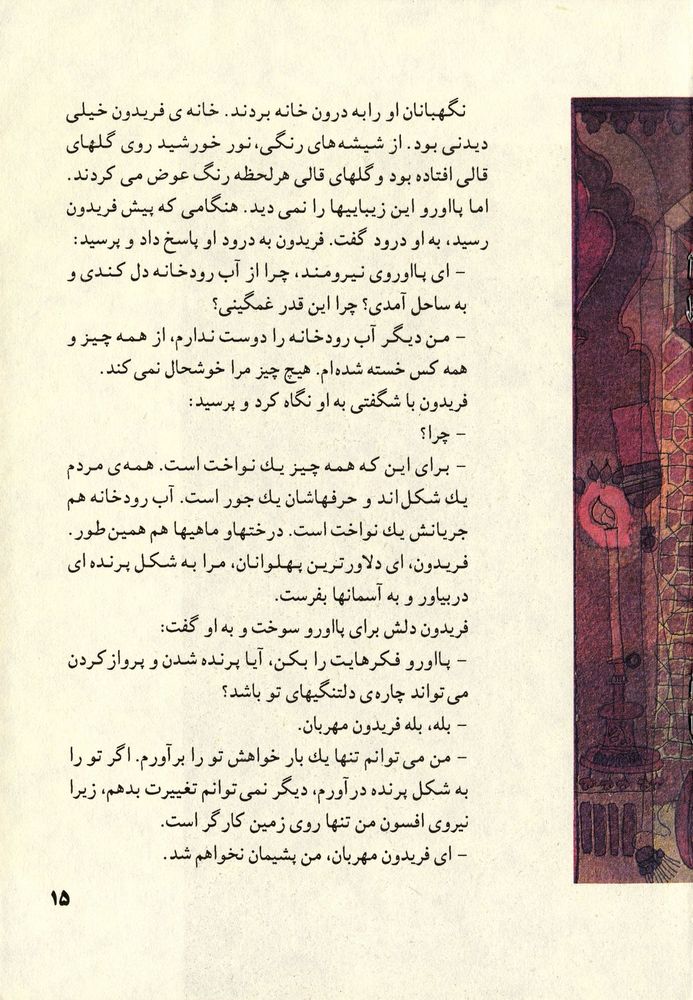 نگهبانان او رابه درون خانه بردند. خانه ی فریدون خیلی
دیدنی بود. از شیشه‌های رنگی، نور خورشید روی گلهای
قالی افتاده بود وگلهای قالی هرلحظه رنگ عوض می کردند.
اما پااورو این زیباییها را نمی دید. هنگامی که پیش فریدون
رسید، به او درود گفت. فریدون به درود او پاسخ داد و پرسید:
– ای پااوروی نیرومند، چرا از آب رودخانه دل کندی و
به ساحل آمدی؟ چرا این قدر غمگینی؟
– من دیگر آب رودخانه را دوست ندارم، از همه چیز و
همه کس خسته شده‌ام. هیچ چیز مرا خوشحال نمی کند.
فریدون با شگفتی به او نگاه کرد و پرسید:
– چرا؟
– برای این که همه چیز یك نواخت است. همه‌ی مردم
یك شکل‌اند و حرفهاشان یك جور است. آب رودخانه هم
جریانش یك نواخت است. درختهاو ماهیها هم همین طور.
فریدون، ای دلاورترین پهلوانان، مرا به شکل پرنده ای
دربیاور و به آسمانها بفرست.
فریدون دلش برای پااورو سوخت و به او گفت:
– پااورو فکرهایت را بکن، آیا پرنده شدن و پروازکردن
می تواند چاره‌ی دلتنگیهای تو باشد؟
– بله، بله فریدون مهربان.
– من می توانم تنها یك بار خواهش تو را برآورم. اگر تو را
به شکل پرنده درآورم، دیگر نمی توانم تغییرت بدهم، زیرا
نیروی افسون من تنها روی زمین کارگر است.
– ای فریدون مهربان، من پشیمان نخواهم شد.
۱۵